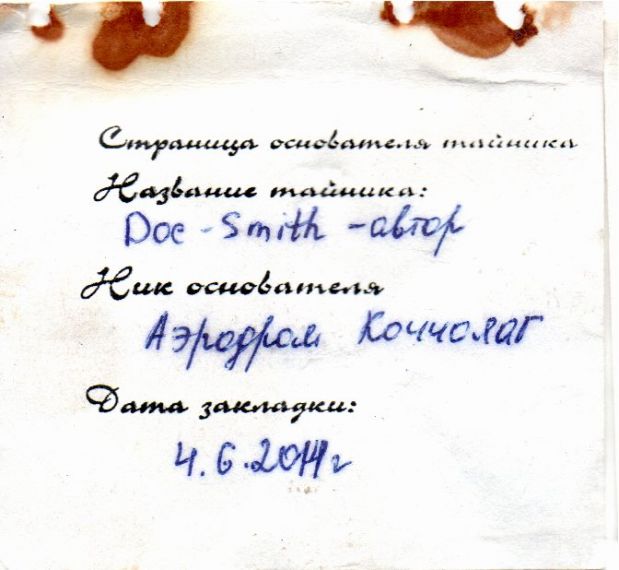 Страница основателя тайника
Название тайника:
Doc-Smith -автор
Ник основателя
Аэродром Коччолаг
Дата закладки:
4.6.2014г